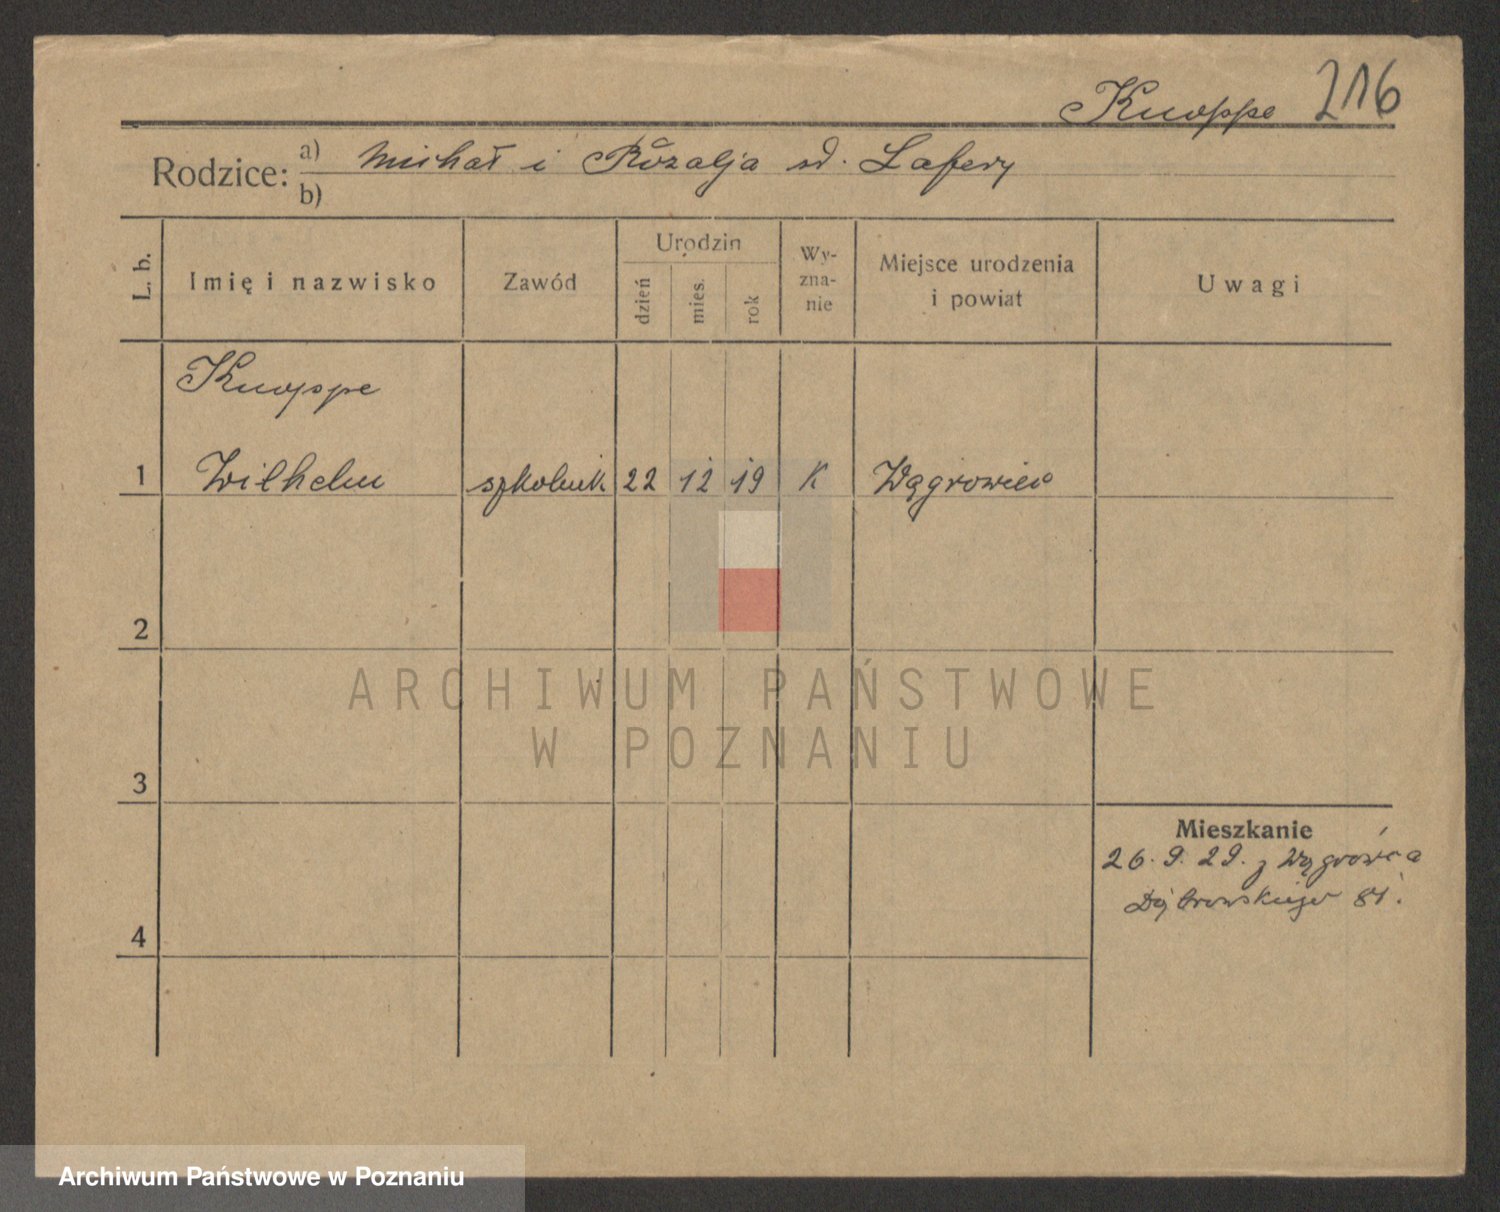 Knoppe 216
Rodzice: a) Michał i Rozalja
b)
L. b. Imię i nazwisko Zawód Urodzin dzień mies. rok Wy-zna-nie Miejsce urodzenia i powiat Uwagi
Knoppe
1 Wilhelm szkolnik 22 12 19 K Wągrowiec
2
ARCHIWUM PAŃSTWOWE
W POZNANIU
3
Mieszkanie
26. 9. 29. z Wągrówca
Dąbrowskiego 81.
4
Archiwum Państwowe w Poznaniu